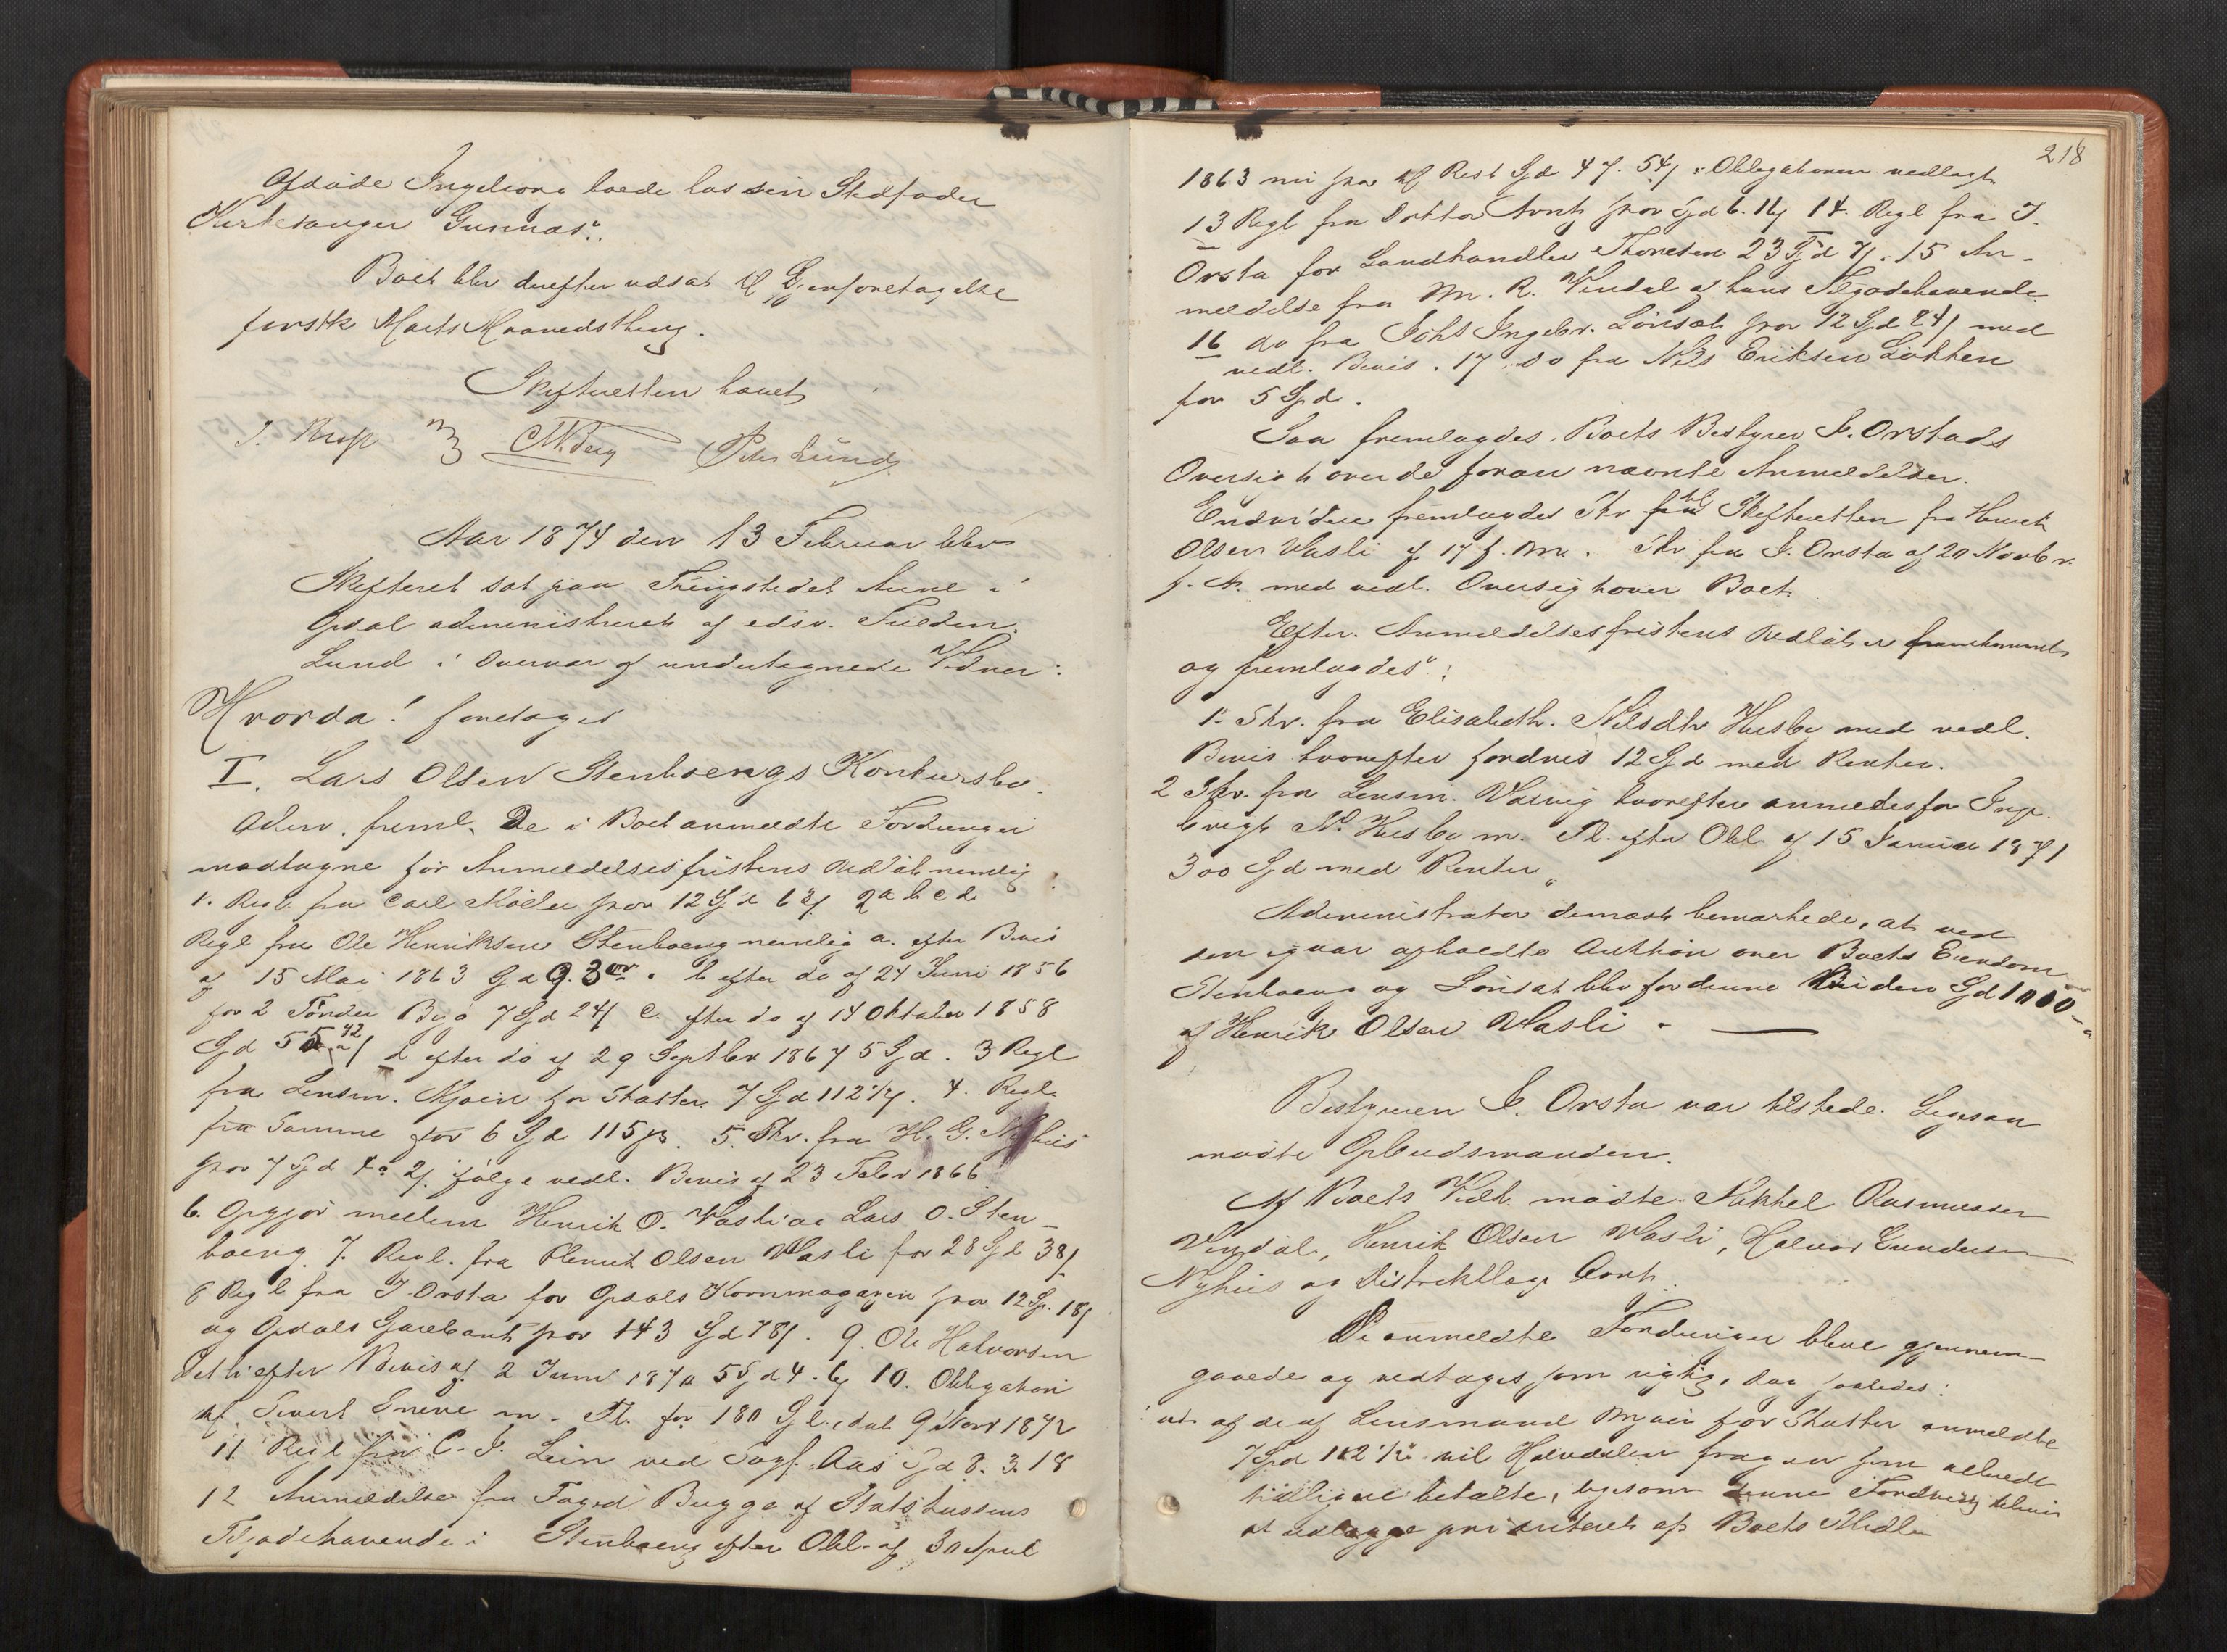 Afdöde Ingeborg boede hos sin Stedfader
Kirkesanger Gunnas".
Boet blev derefter udsat til Gjenforetagelse
førstk Marts Maanedsthing.
Skifteretten hævet
CMBerg Peter Lund
Aar 1874 den 13 Februar blev
Skifteret sat paa Thingstedet Aune i
Opdal administreret af edsv. Fuldm.
Lund i Overvær af undertegnede Vidner:
Hvorda! foretoges
I. Lars Olsen Stenboengs Konkursbo.
Adm. freml. De i Boet anmeldte Fordringer
modtagne før Anmeldelsesfristens Udløb nemlig:
1. Regl. fra Carl Möller stor 12 Spd 63/ 2 a b c d
Regl fra Ole Henriksen Stenboeng nemlig a. efter Bevis
af 15 Mai 1863 Spd 9. 3 ort. b efter do af 24 Juni 1856
for 2 Tönder Byg 7 Spd 24/ c. efter do af 14 Oktober 1858
Spd 55 42/ d efter do af 29 Septbr 1867 5 Spd. 3 Regl
fra Lensm. Mjøen for Skatter 7 Spd 112½/. 4. Regl.
fra Samme for 6 Spd 115 β. 5. Skr. fra H. G. Nyhus
stor 7 Spd 4 o 2/. ifølge vedl. Bevis af 23 Febr 1866.
6. Opgjör mellem Henrik O. Vasli og Lars O. Sten-
boeng. 7. Regl. fra Henrik Olsen Vasli for 28 Spd 38/
8 Regl fra I Orsta for Opdals Kornmagazin stor 12 Sp. 18/
og Opdals Sparebank stor 143 Spd 78/. 9. Ole Halvorsen
efter Bevis af 2 Juni 1870 5 Spd 4. 10. Obligation
til Sivert Sneve m. Fl. for 180 Spd., dat 9 Novr 1872
11. Regl fra C. J. Lein ved Sagf. Aas Spd 8. 3. 18
12 Anmeldelse fra Foged Bugge af Statskassens
Tilgodehavende i Stenboeng efter Obl. af 30 April
218
1863 nu stor til Rest Spd 47. 54/ : Obligationen vedlagt
13 Regl fra Doktor Arntz stor Spd 6. 14. Regl fra I.
Orsta for Landhandler Thoresen 23 Spd 7/. 15 An-
meldelse fra M. R. Vindal af hans Tilgodehavende
16 do fra Johs Ingebr. Lönset stor 12 Spd 24/ med
vedl. Bevis. 17. do fra Nils Eriksen Løkken
for 5 Spd.
Saa fremlagdes Boets Bestyrer I. Orstads
Oversigt over de foran nævnte Anmeldelser.
Endvidere fremlagdes Skr til Skifteretten fra Henrik
Olsen Vasli af 17 f. M. Skr fra I. Orsta af 20 Novbr.
f. A. med vedl. Oversigt over Boet.
Efter Anmeldelsesfristens Udlöb er fremkommet
og fremlagdes":
1. Skr. fra Elisabeth Nilsdtr Husby med vedl.
Bevis hvorefter fordres 12 Spd med Renter.
2 Skr. fra Lensm. Valvig hvorefter anmeldes for Inge-
brigt N. Husby m. Fl. efter Obl. af 15 Januar 1871
300 Spd med Renter.
Administrator dernæst bemærkede, at ved
den igaar afholdte Auktion over Boets Eiendom
Stenboeng og Lönset blev for denne buden Spd 1000
af Henrik Olsen Vasli.
Bestyreren I. Orsta var tilstede. Ligesaa
mødte Opbudsmanden.
Af Boets Vedk. mødte Mikkel Rasmussen
Vindal, Henrik Olsen Vasli, Halvor Gundersen
Nyhus og Distriktlæge Arntz.
De anmeldte Fordringer bleve gjennem-
gaaede og vedtoges som rigtig, dog saaledes:
at af de af Lensmand Mjøen for Skatter anmeldte
7 Spd 112½ vil Halvdelen fragaa som allerede
tidligere betalte, ligesom denne Fordring bliver
at udlægge prioriteret af Boets Midler